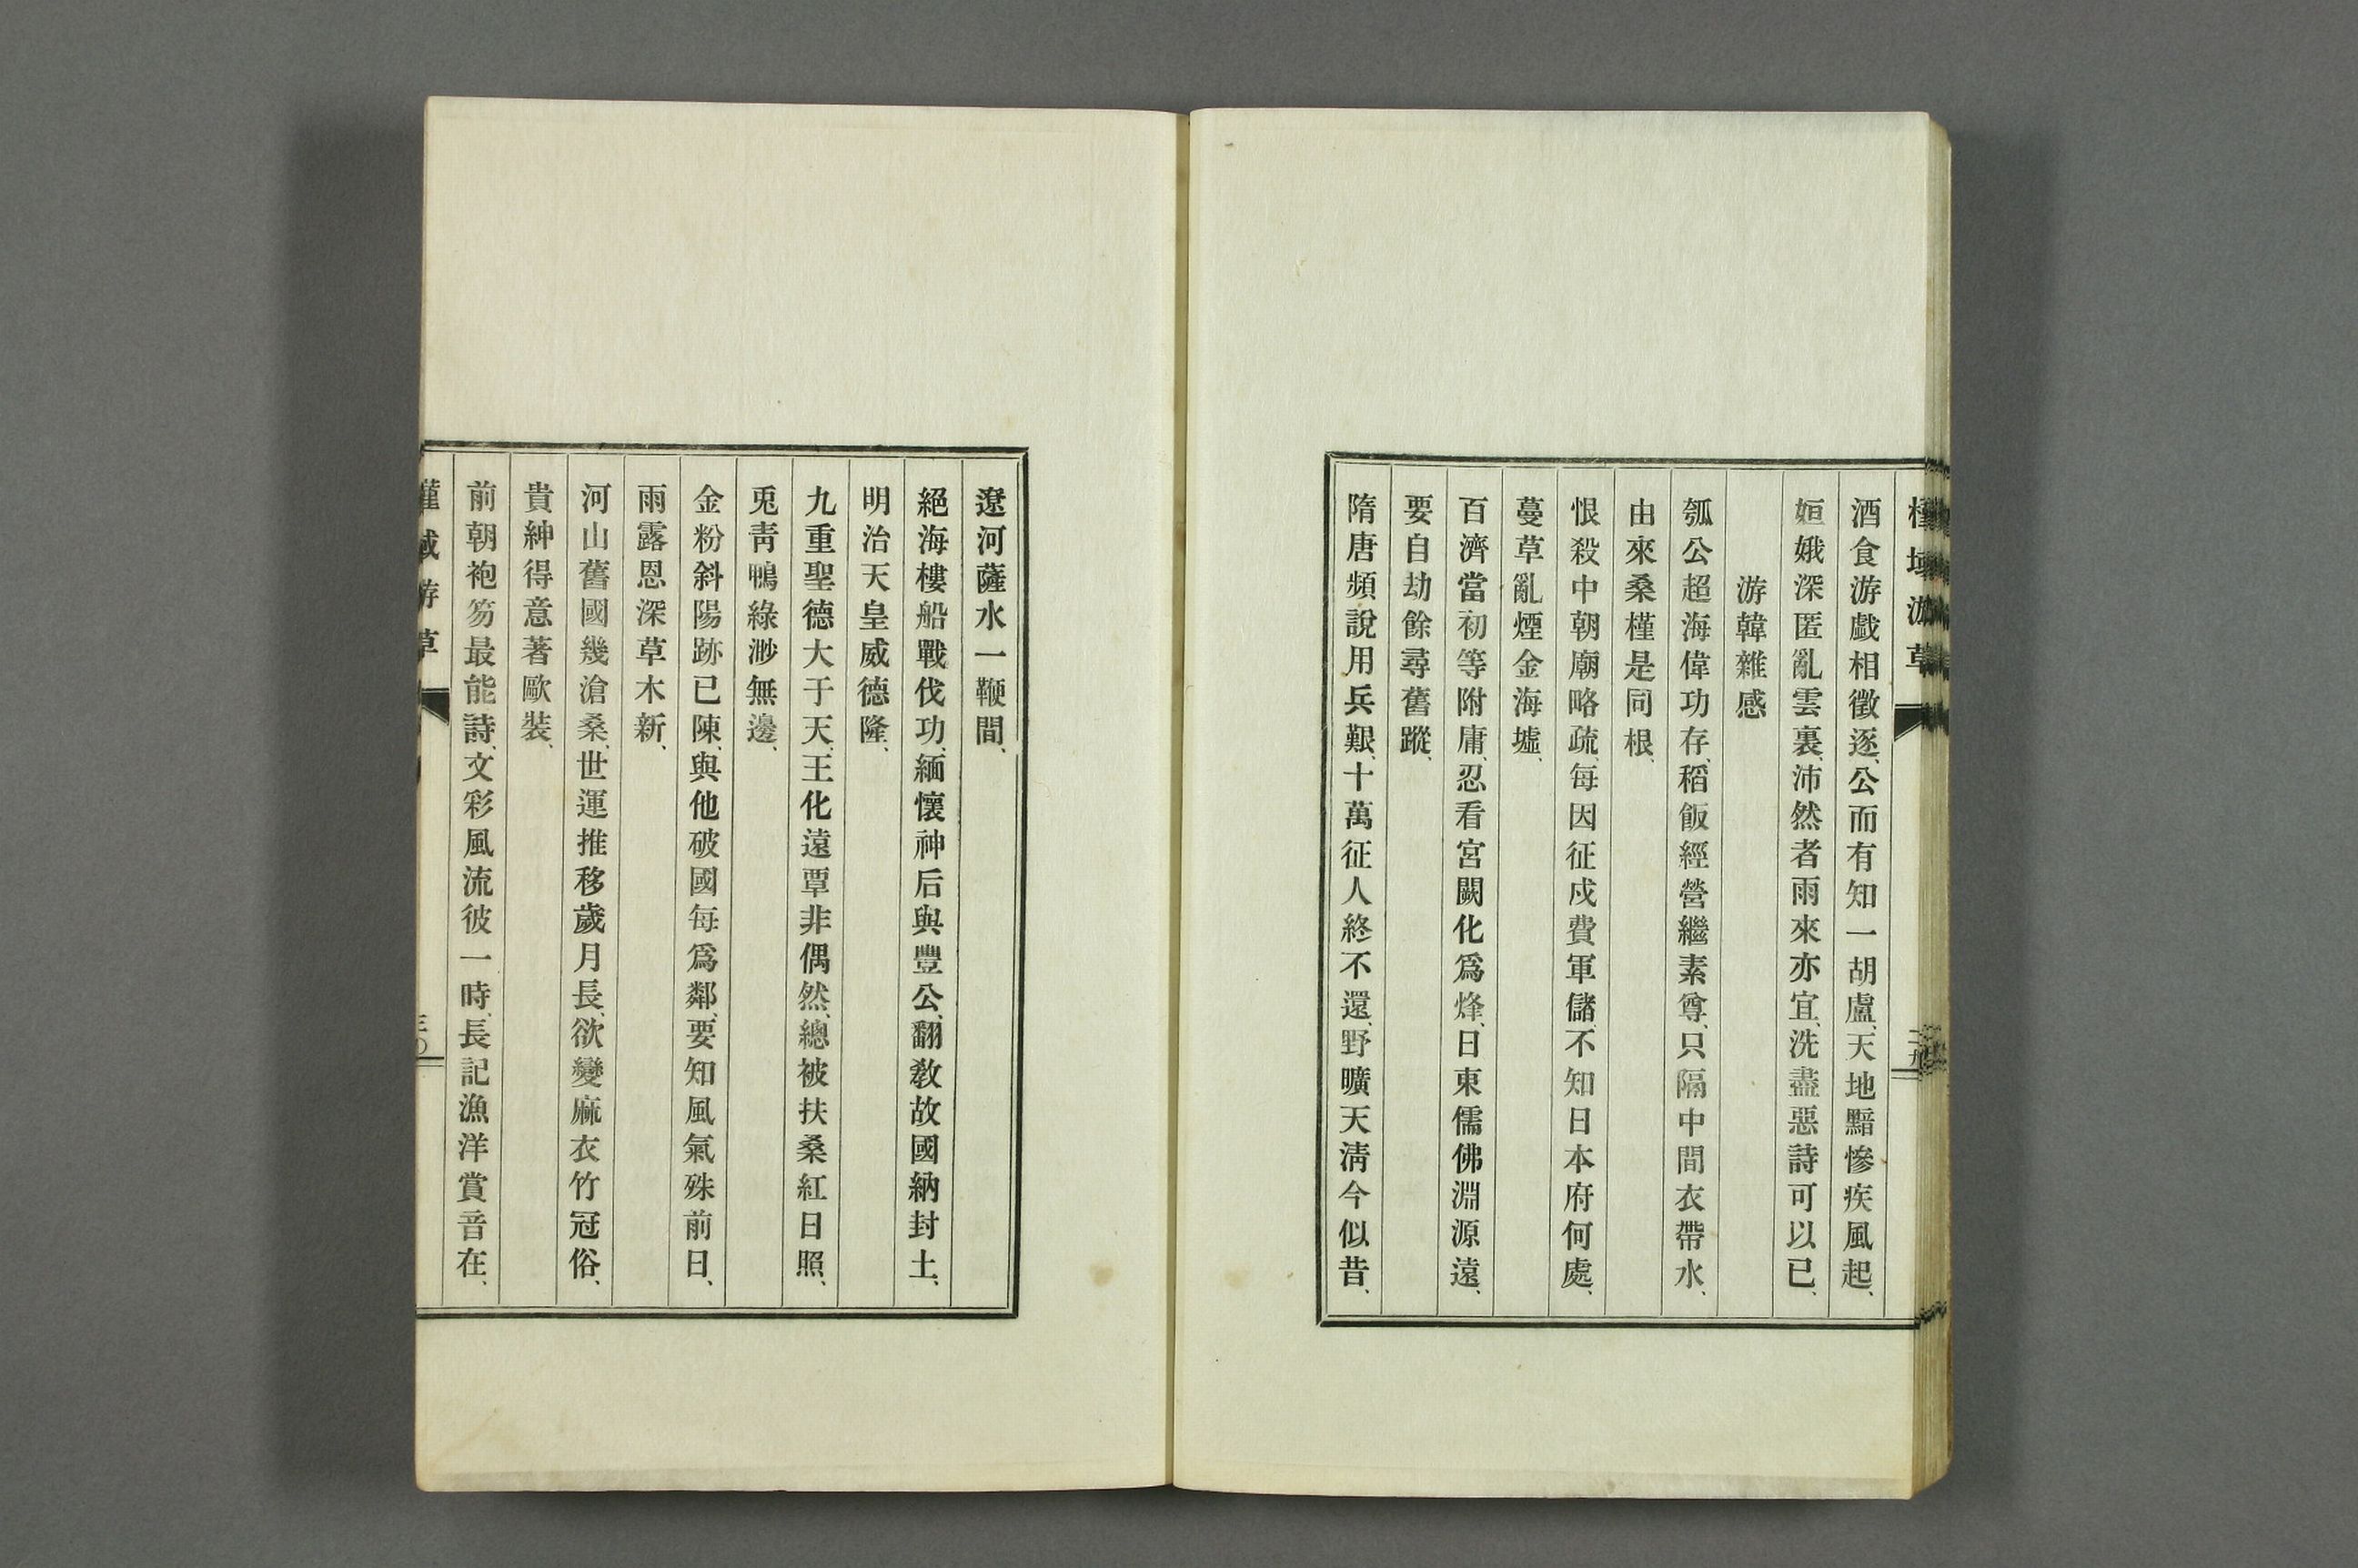 槿域游草
二九
酒食游戲相徵逐、公而有知一胡盧、天地黯慘疾風起、
姮娥深匿亂雲裏、沛然者雨來亦宜、洗盡惡詩可以已、
游韓雜感
瓠公超海偉功存、稻飯經營繼素尊、只隔中間衣帶水、
由來桑槿是同根、
恨殺中朝廟略疏、每因征戍費軍儲、不知日本府何處、
蔓草亂煙金海墟、
百濟當初等附庸、忍看宮闕化爲烽、日東儒佛淵源遠、
要自劫餘尋舊蹤、
隋唐頻說用兵艱、十萬征人終不還、野曠天淸今似昔、
遼河薩水一鞭間、
絕海樓船戰伐功、緬懷神后與豐公、翻敎故國納封土、
明治天皇威德隆、
九重聖德大于天、王化遠覃非偶然、總被扶桑紅日照、
兎靑鴨綠渺無邊、
金粉斜陽跡已陳、與他破國每爲鄰、要知風氣殊前日、
雨露恩深草木新、
河山舊國幾滄桑、世運推移歲月長、欲變麻衣竹冠俗、
貴紳得意著歐裝、
前朝袍笏最能詩、文彩風流彼一時、長記漁洋賞音在、
槿域游草
三〇